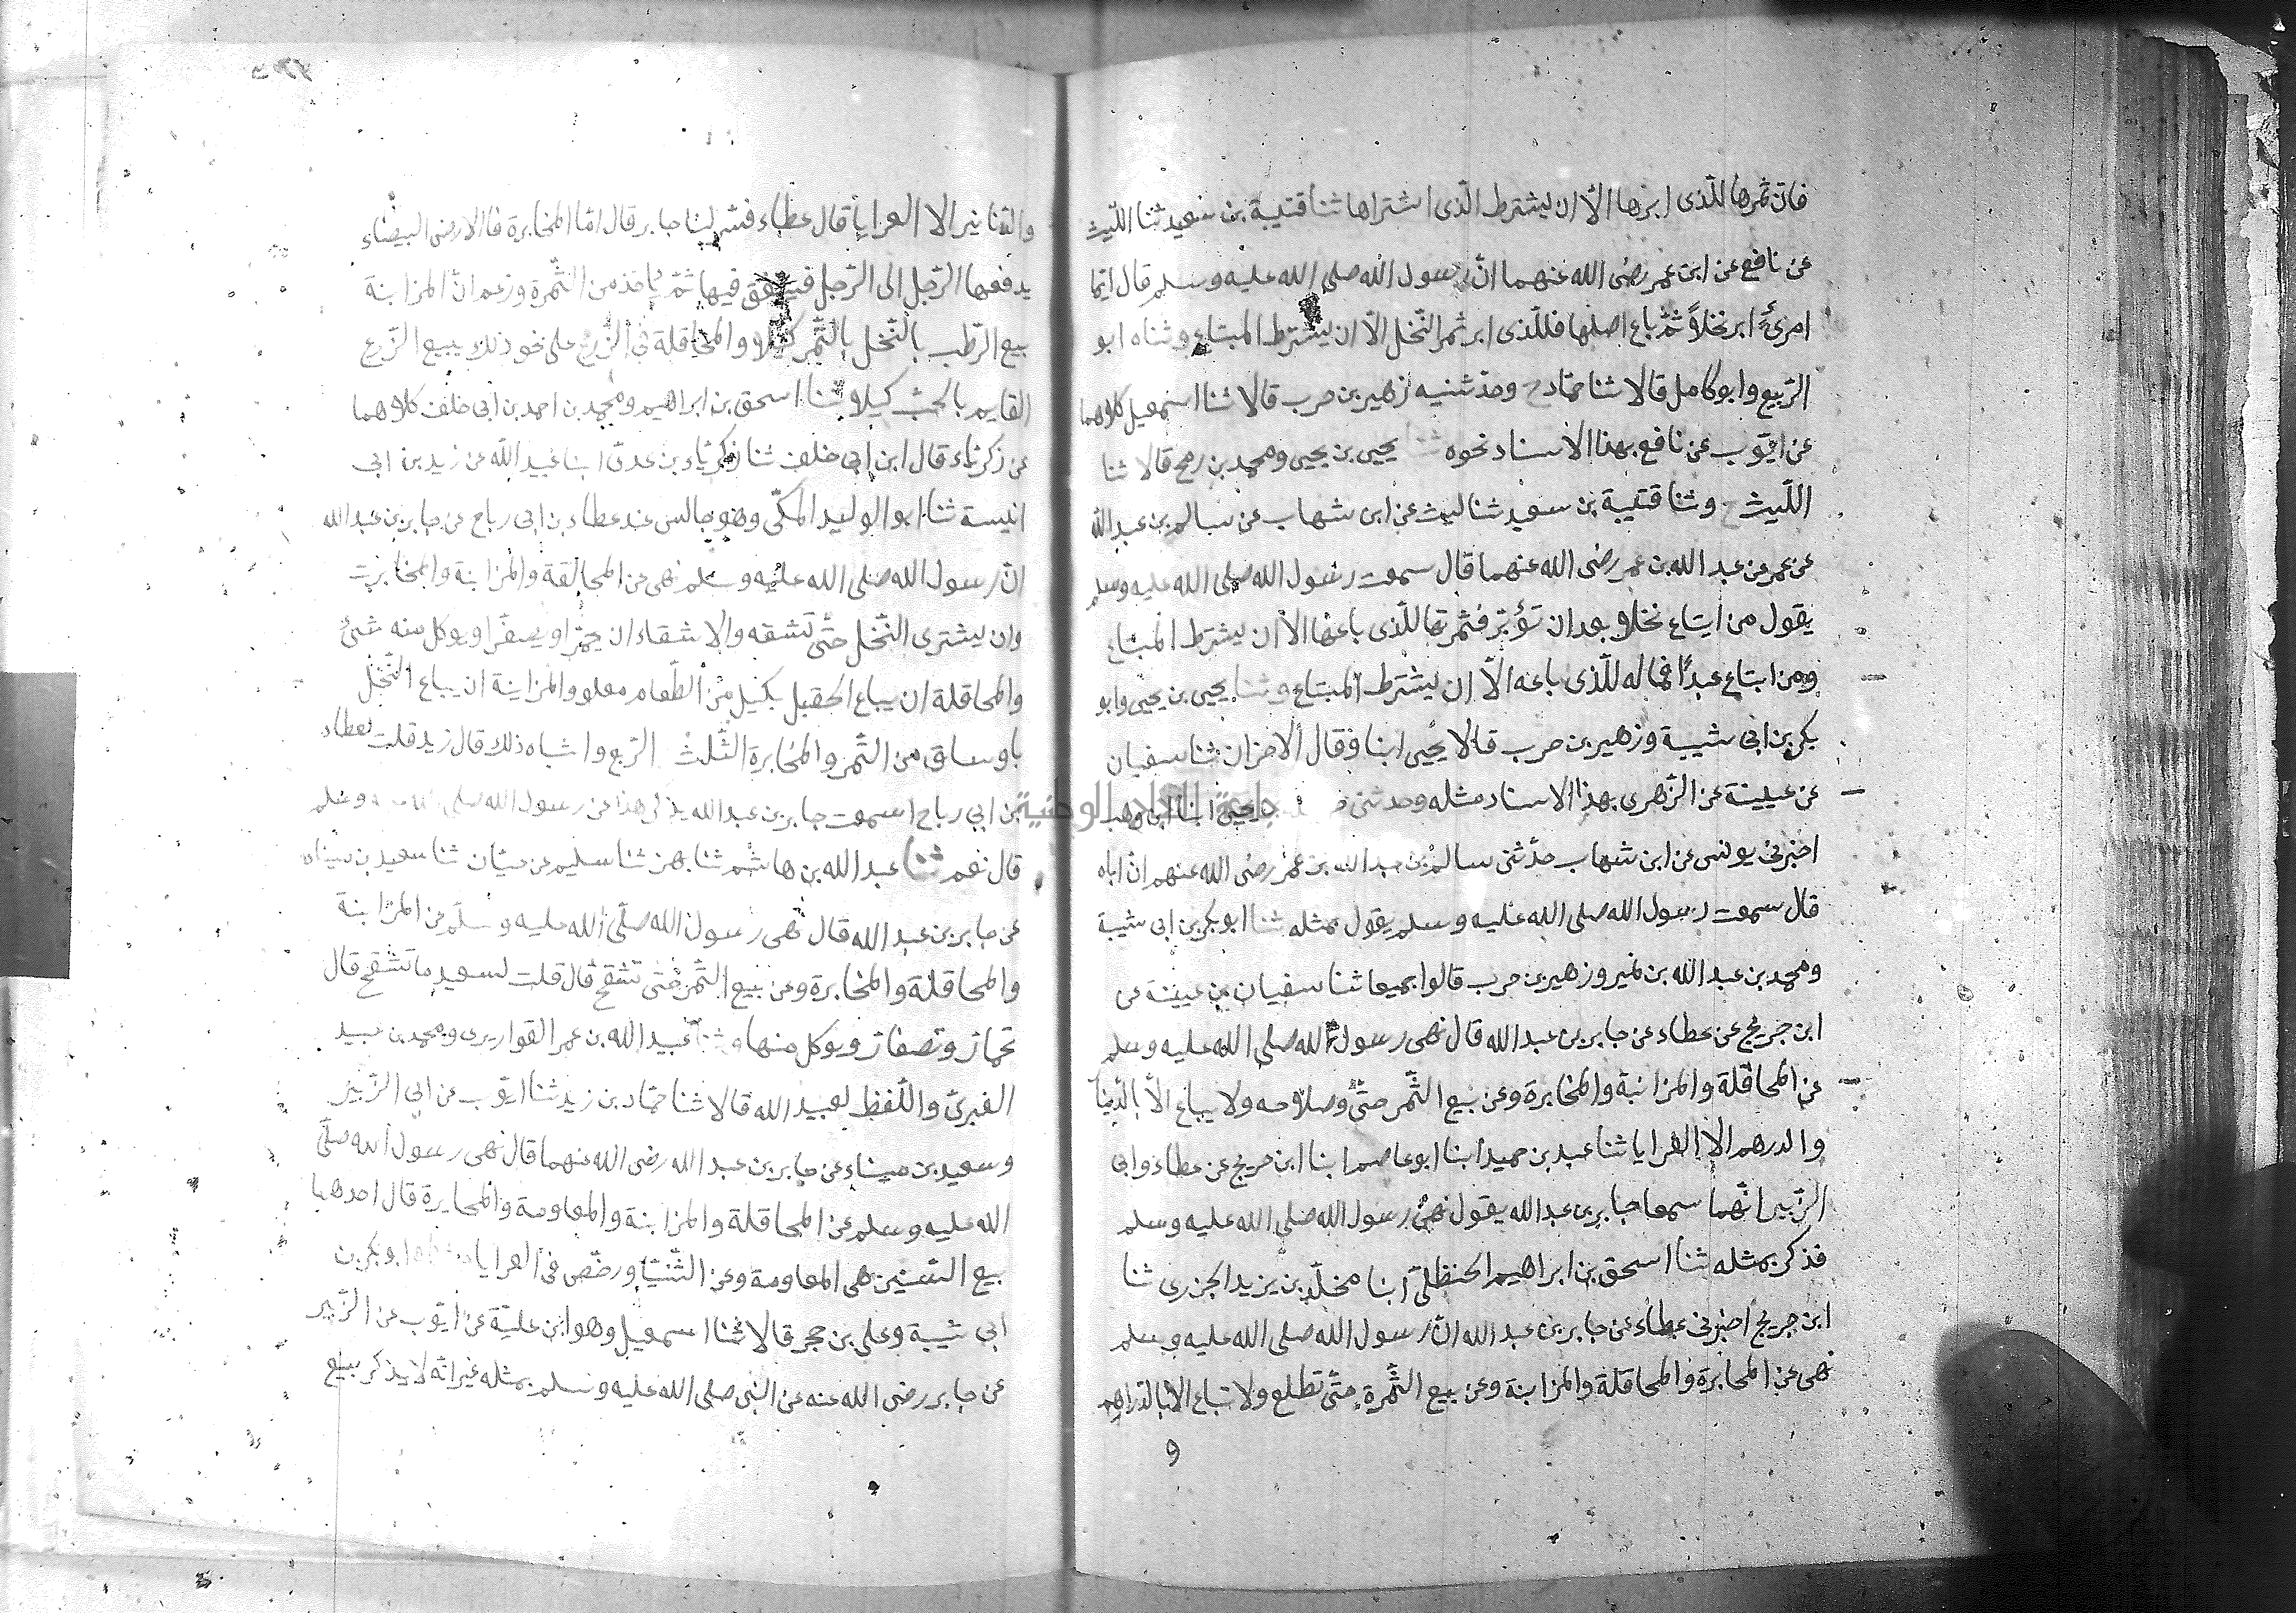 فان ثمرها للذى ابرها الا ان يشترط الذى اشتراها ثنا قتيبة بن سعيد ثنا الليث
عن نافع عن ابن عمر رضى الله عنهما ان رسول الله صلى الله عليه وسلم قال ايما
امرئ ابر نخلاً ثم باع اصلها فللذى ابر ثمر النخل الا ان يشترط المبتاع وثناه ابو
الربيع وابو كامل قالا ثنا حماد ح وحدثنيه زهير بن حرب قالا ثنا اسمعيل كلاهما
عن ايوب عن نافع بهذا الاسناد نحوه ثنا يحيى بن يحيى ومحمد بن رمح قالا ثنا
الليث ح وثنا قتيبة بن سعيد ثنا ليث عن ابن شهاب عن سالم بن عبد الله
عن عمر عن عبد الله بن عمر رضى الله عنهما قال سمعت رسول الله صلى الله عليه وسلم
يقول من ابتاع نخلا بعد ان تؤبر فثمرتها للذى باعها الا ان يشترط المبتاع
ومن ابتاع عبدًا فماله للذى باعه الا ان يشترط المبتاع وثنا يحيى بن يحيى وابو
بكر بن ابى شيبة وزهير بن حرب قالا يحيى ابنا وقال الاخران ثنا سفيان
عن عيينة عن الزهرى بهذا الاسناد مثله وحدثنى يحيى ابنا ابن وهب
اخبرنى يونس عن ابن شهاب حدثنى سالم بن عبد الله بن عمر رضى الله عنهم ان اباه
قال سمعت رسول الله صلى الله عليه وسلم يقول بمثله ثنا ابو بكر بن ابى شيبة
ومحمد بن عبد الله بن نمير وزهير بن حرب قالوا جميعا ثنا سفيان بن عيينة عن
ابن جريج عن عطاء عن جابر بن عبد الله قال نهى رسول الله صلى الله عليه وسلم
عن المحاقلة والمزابنة والمخابرة وعن بيع الثمر حتى وصلاحه ولا يباع الا بالدينا
والدرهم الا العرايا ثنا عبد بن حميد ابنا ابو عاصم ابنا ابن جريج عن عطاء وابى
الزبير انهما سمعا جابر بن عبد الله يقول نهى رسول الله صلى الله عليه وسلم
فذكر بمثله ثنا اسحق بن ابراهيم الحنظلى ابنا مخلد بن يزيد الجزرى ثنا
ابن جريج اخبرنى عطاء عن جابر بن عبد الله ان رسول الله صلى الله عليه وسلم
نهى عن المخابرة والمحاقلة والمزابنة وعن بيع الثمرة حتى تطلع ولا تباع الا بالدراهم
و
والدنانير الا العرايا قال عطاء فسر لنا جابر قال اما المخابرة فالارض البيضاء
يدفعها الرجل الى الرجل فينفق فيها ثم ياخذ من الثمرة وزعم ان المزابنة
بيع الرطب بالنخل بالتمر كيلا والمحاقلة فى الزرع على نحو ذلك يبيع الزرع
القايم بالحب كيلا ثنا اسحق بن ابراهيم ومحمد بن احمد بن ابى خلف كلاهما
عن زكرياء قال ابن ابى خلف ثنا زكرياء بن عدى ابنا عبيد الله عن زيد بن ابى
انيسة ثنا ابو الوليد المكى وهو جالس عند عطاء بن ابى رباح عن جابر بن عبد الله
ان رسول الله صلى الله عليه وسلم نهى عن المحالقة والمزابنة والمخابرت
وان يشترى النخل حتى تشقه والاشقاء ان يحمر او يصفر او يوكل منه شئ
والمحاقلة ان يباع الحقيل بكيل من الطعام معلو والمزابنة ان يباع النخل
باوساق من التمر والمخابرة الثلث الربع واشباه ذلك قال زيد قلت لعطاء
بن ابي رباح اسمعت جابر بن عبد الله يذكر هذا عن رسول الله صلى الله عليه وسلم
قال نعم ثنا عبد الله بن هاشم ثنا بهز ثنا سليم عن حيان ثنا سعيد بن ميناء
عن جابر بن عبد الله قال نهى رسول الله صلى الله عليه وسلم عن المزابنة
والمحاقلة والمخابرة وعن بيع الثمر حتى تشقح قال قلت لسعيد ما تشقح قال
تحمار وتصفار ويوكل منها وثنا عبيد الله بن عمر القواريرى ومحمد بن عبيد
الغبرى واللفظ لعبيد الله قالا ثنا حماد بن زيد ثنا ايوب عن ابى الزبير
وسعيد بن ميناء عن جابر بن عبد الله رضى الله عنهما قال نهى رسول الله صلى
الله عليه وسلم عن المحاقلة والمزابنة والمعاومة والمخابرة قال احدهما
بيع السنين هى المعاومة وعن الثنيا ورخص فى العرايا ابو بكر بن
ابى شيبة وعلى بن حجر قالا ثنا اسمعيل وهو ابن علية عن ايوب عن الزبير
عن جابر رضى الله عنه عن النبى صلى الله عليه وسلم بمثله غير انه لا يذكر بيع
جامعة النجاح الوطنية